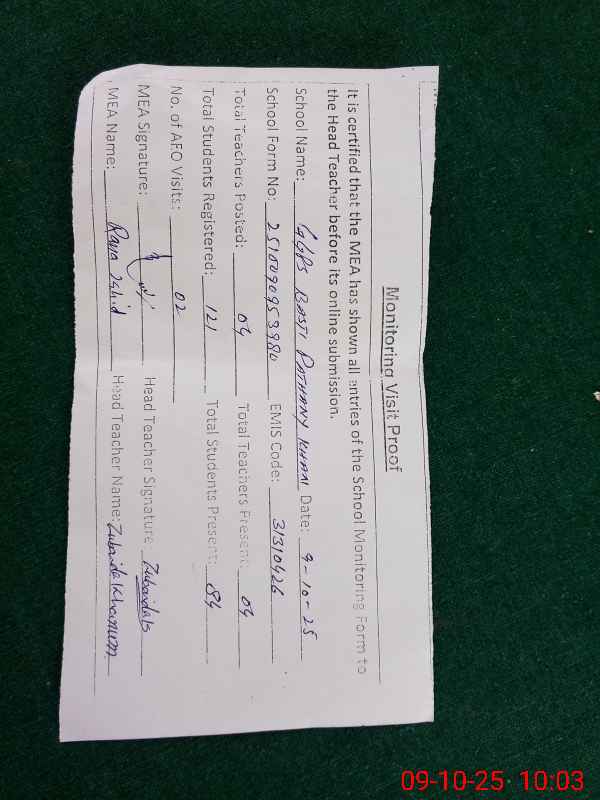 Monitoring Visit Proof
It is certified that the MEA has shown all entries of the School Monitoring Form to
the Head Teacher before its online submission.
School Name: GGPS BASTI PATHANY KHAN Date: 9-10-25
School Form No: EMIS Code: 31310426
Total Teachers Posted: 04 Total Teachers Present: 04
Total Students Registered: 121 Total Students Present: 84
No. of AEO Visits: 02
MEA Signature: Head Teacher Signature Zubaida
MEA Name: Head Teacher Name: Zubaida Khanum
09-10-25 10:03